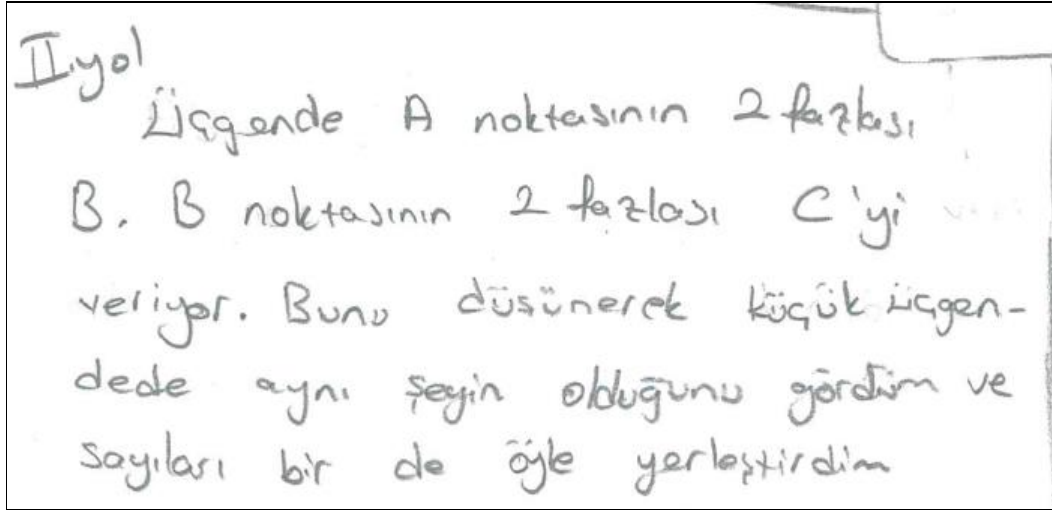 II.yol
Üçgende A noktasının 2 fazlası
B. B noktasının 2 fazlası C'yi
veriyor. Bunu düşünerek küçük üçgen-
dede aynı şeyin olduğunu gördüm ve
sayıları bir de öyle yerleştirdim